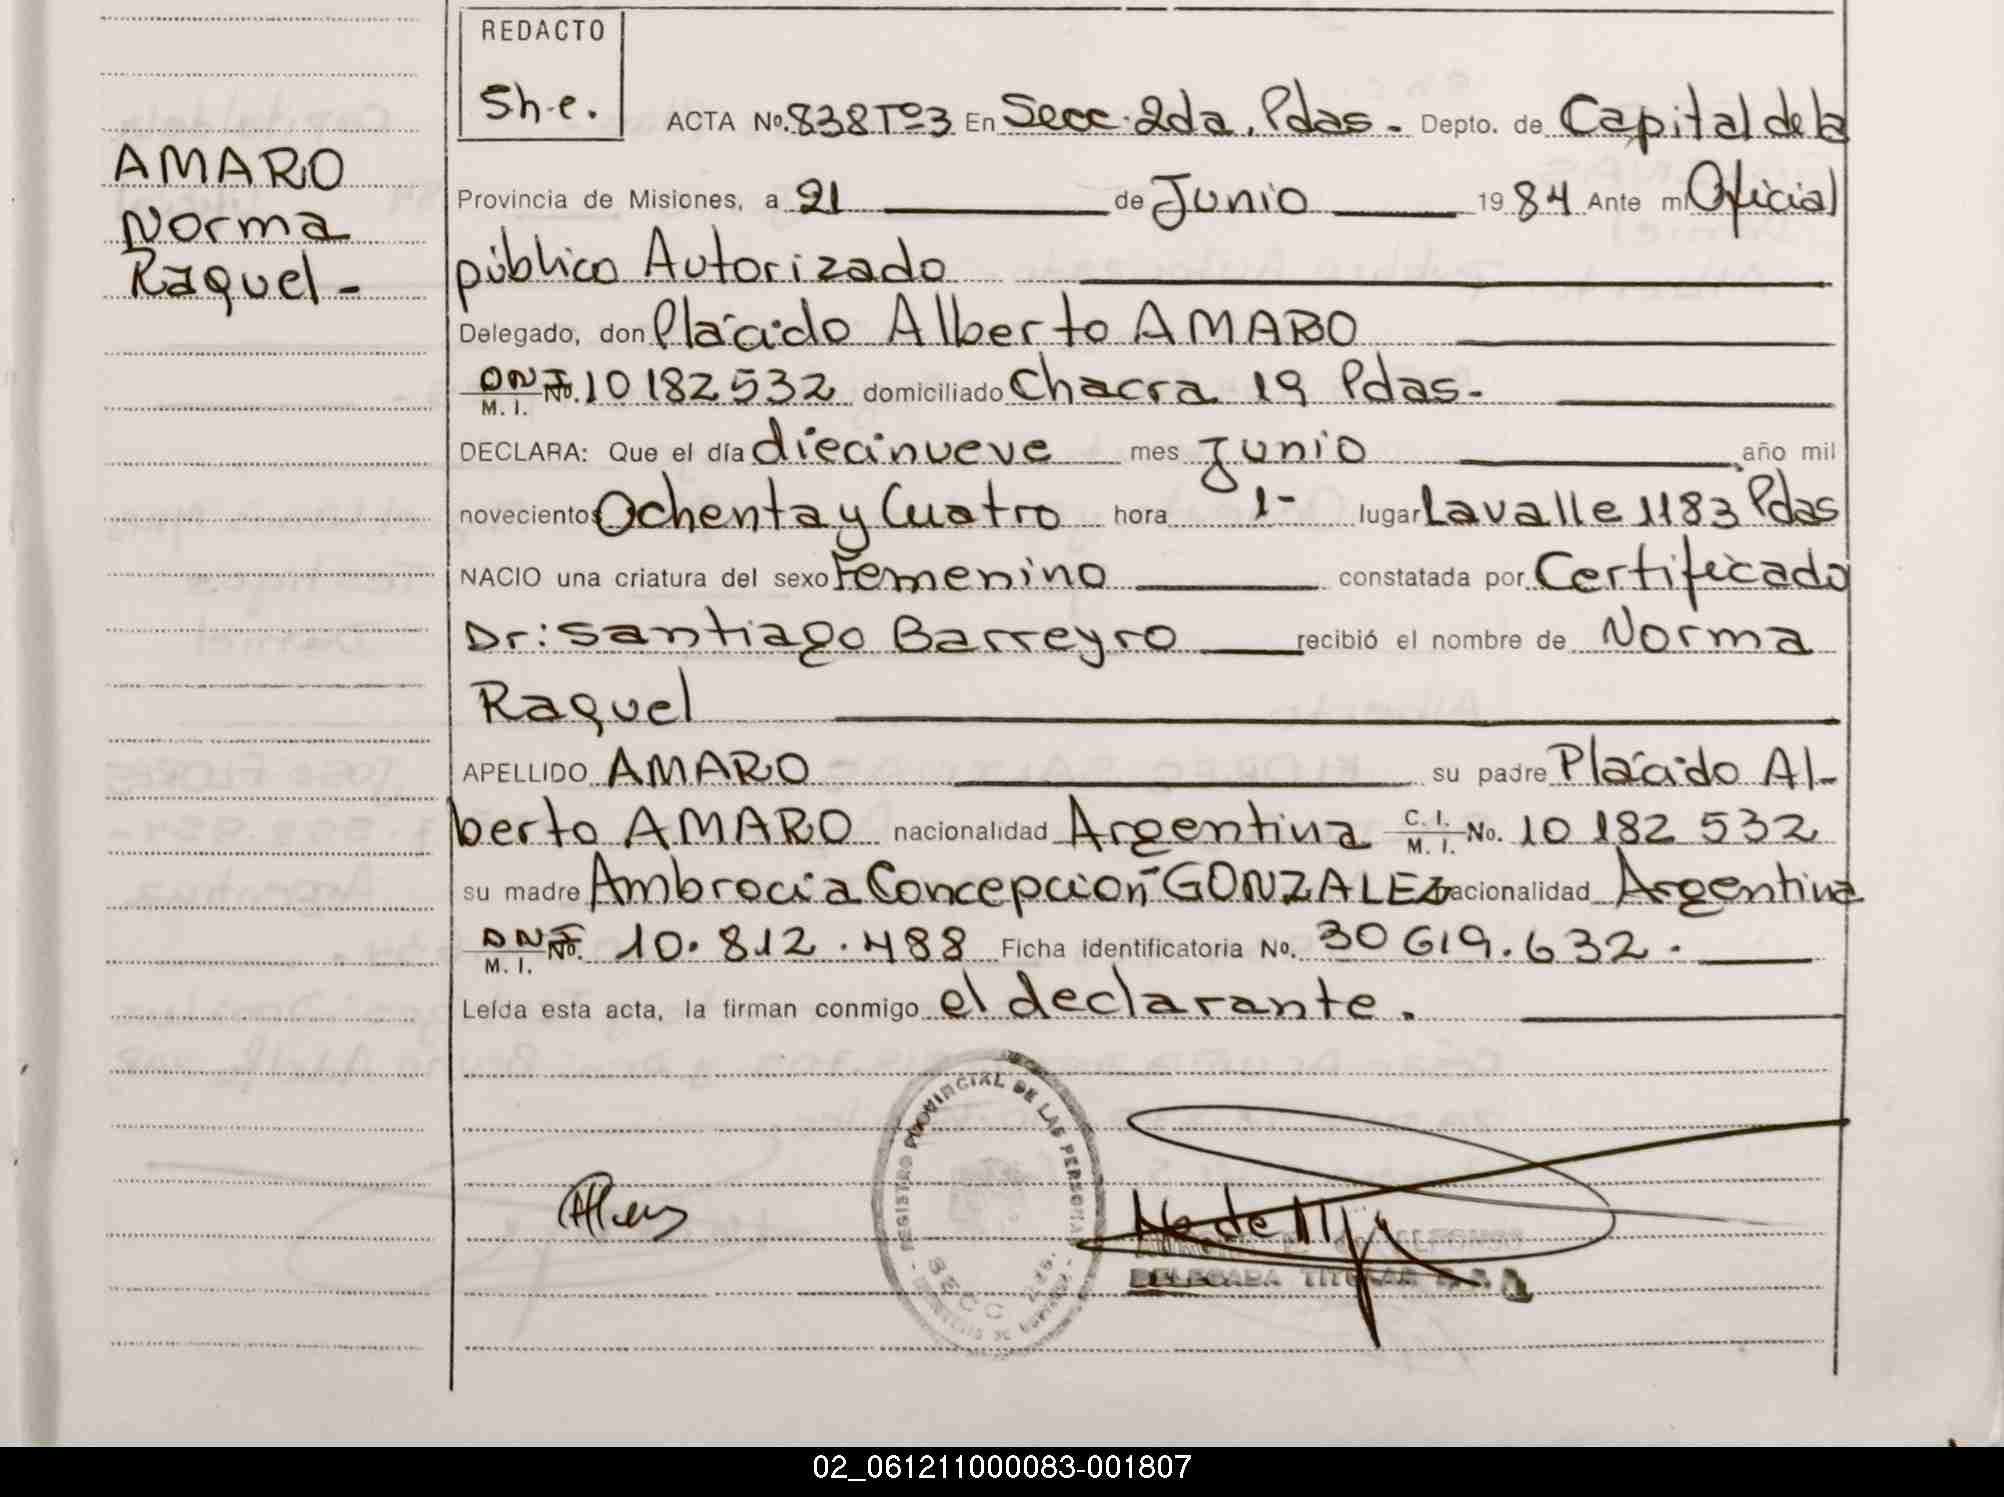 REDACTO
Sh-e.
ACTA No. 838 Tº3 En Secc. 2da, Pdas - Depto. de Capital de la
AMARO
Norma
Raquel -
Provincia de Misiones, a 21 de Junio 1984 Ante mi Oficial
público Autorizado
Delegado, don Plácido Alberto AMARO
DNI No. 10182532 domiciliado Chacra 19 Pdas-
M. I.
DECLARA: Que el día diecinueve mes Junio año mil
novecientos Ochenta y Cuatro hora 1- lugar Lavalle 1183 Pdas
NACIO una criatura del sexo Femenino constatada por Certificado
Dr: Santiago Barreyro recibió el nombre de Norma
Raquel
APELLIDO AMARO su padre Plácido Al-
berto AMARO nacionalidad Argentina C. I. M. I. No. 10 182 532
su madre Ambrocia Concepción GONZALEZ nacionalidad Argentina
DNI No. 10.812.488 Ficha identificatoria No. 30 619.632.
M. I.
Leída esta acta, la firman conmigo el declarante.
REGISTRO PROVINCIAL DE LAS PERSONAS
SECC
DELEGADA TITULAR
02_061211000083-001807